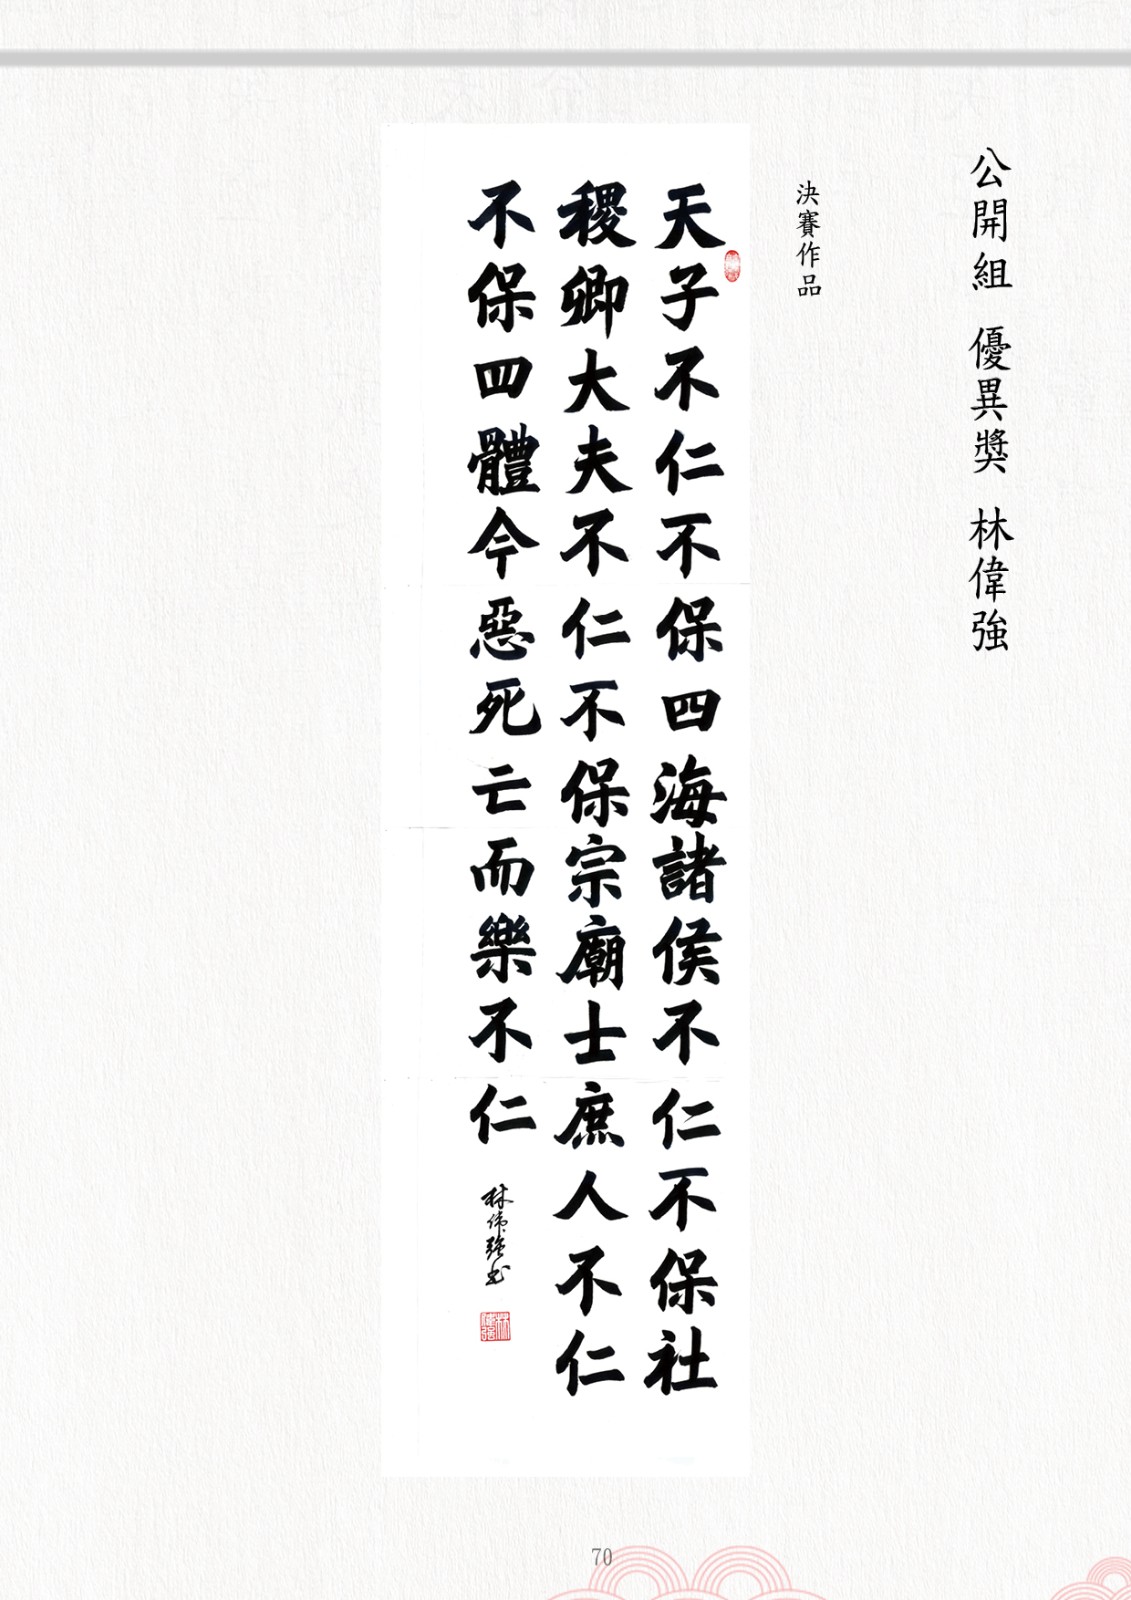 公開組 優異獎 林偉強
決賽作品
天子不仁不保四海諸侯不仁不保社
稷卿大夫不仁不保宗廟士庶人不仁
不保四體今惡死亡而樂不仁
林偉強書
林偉強
70